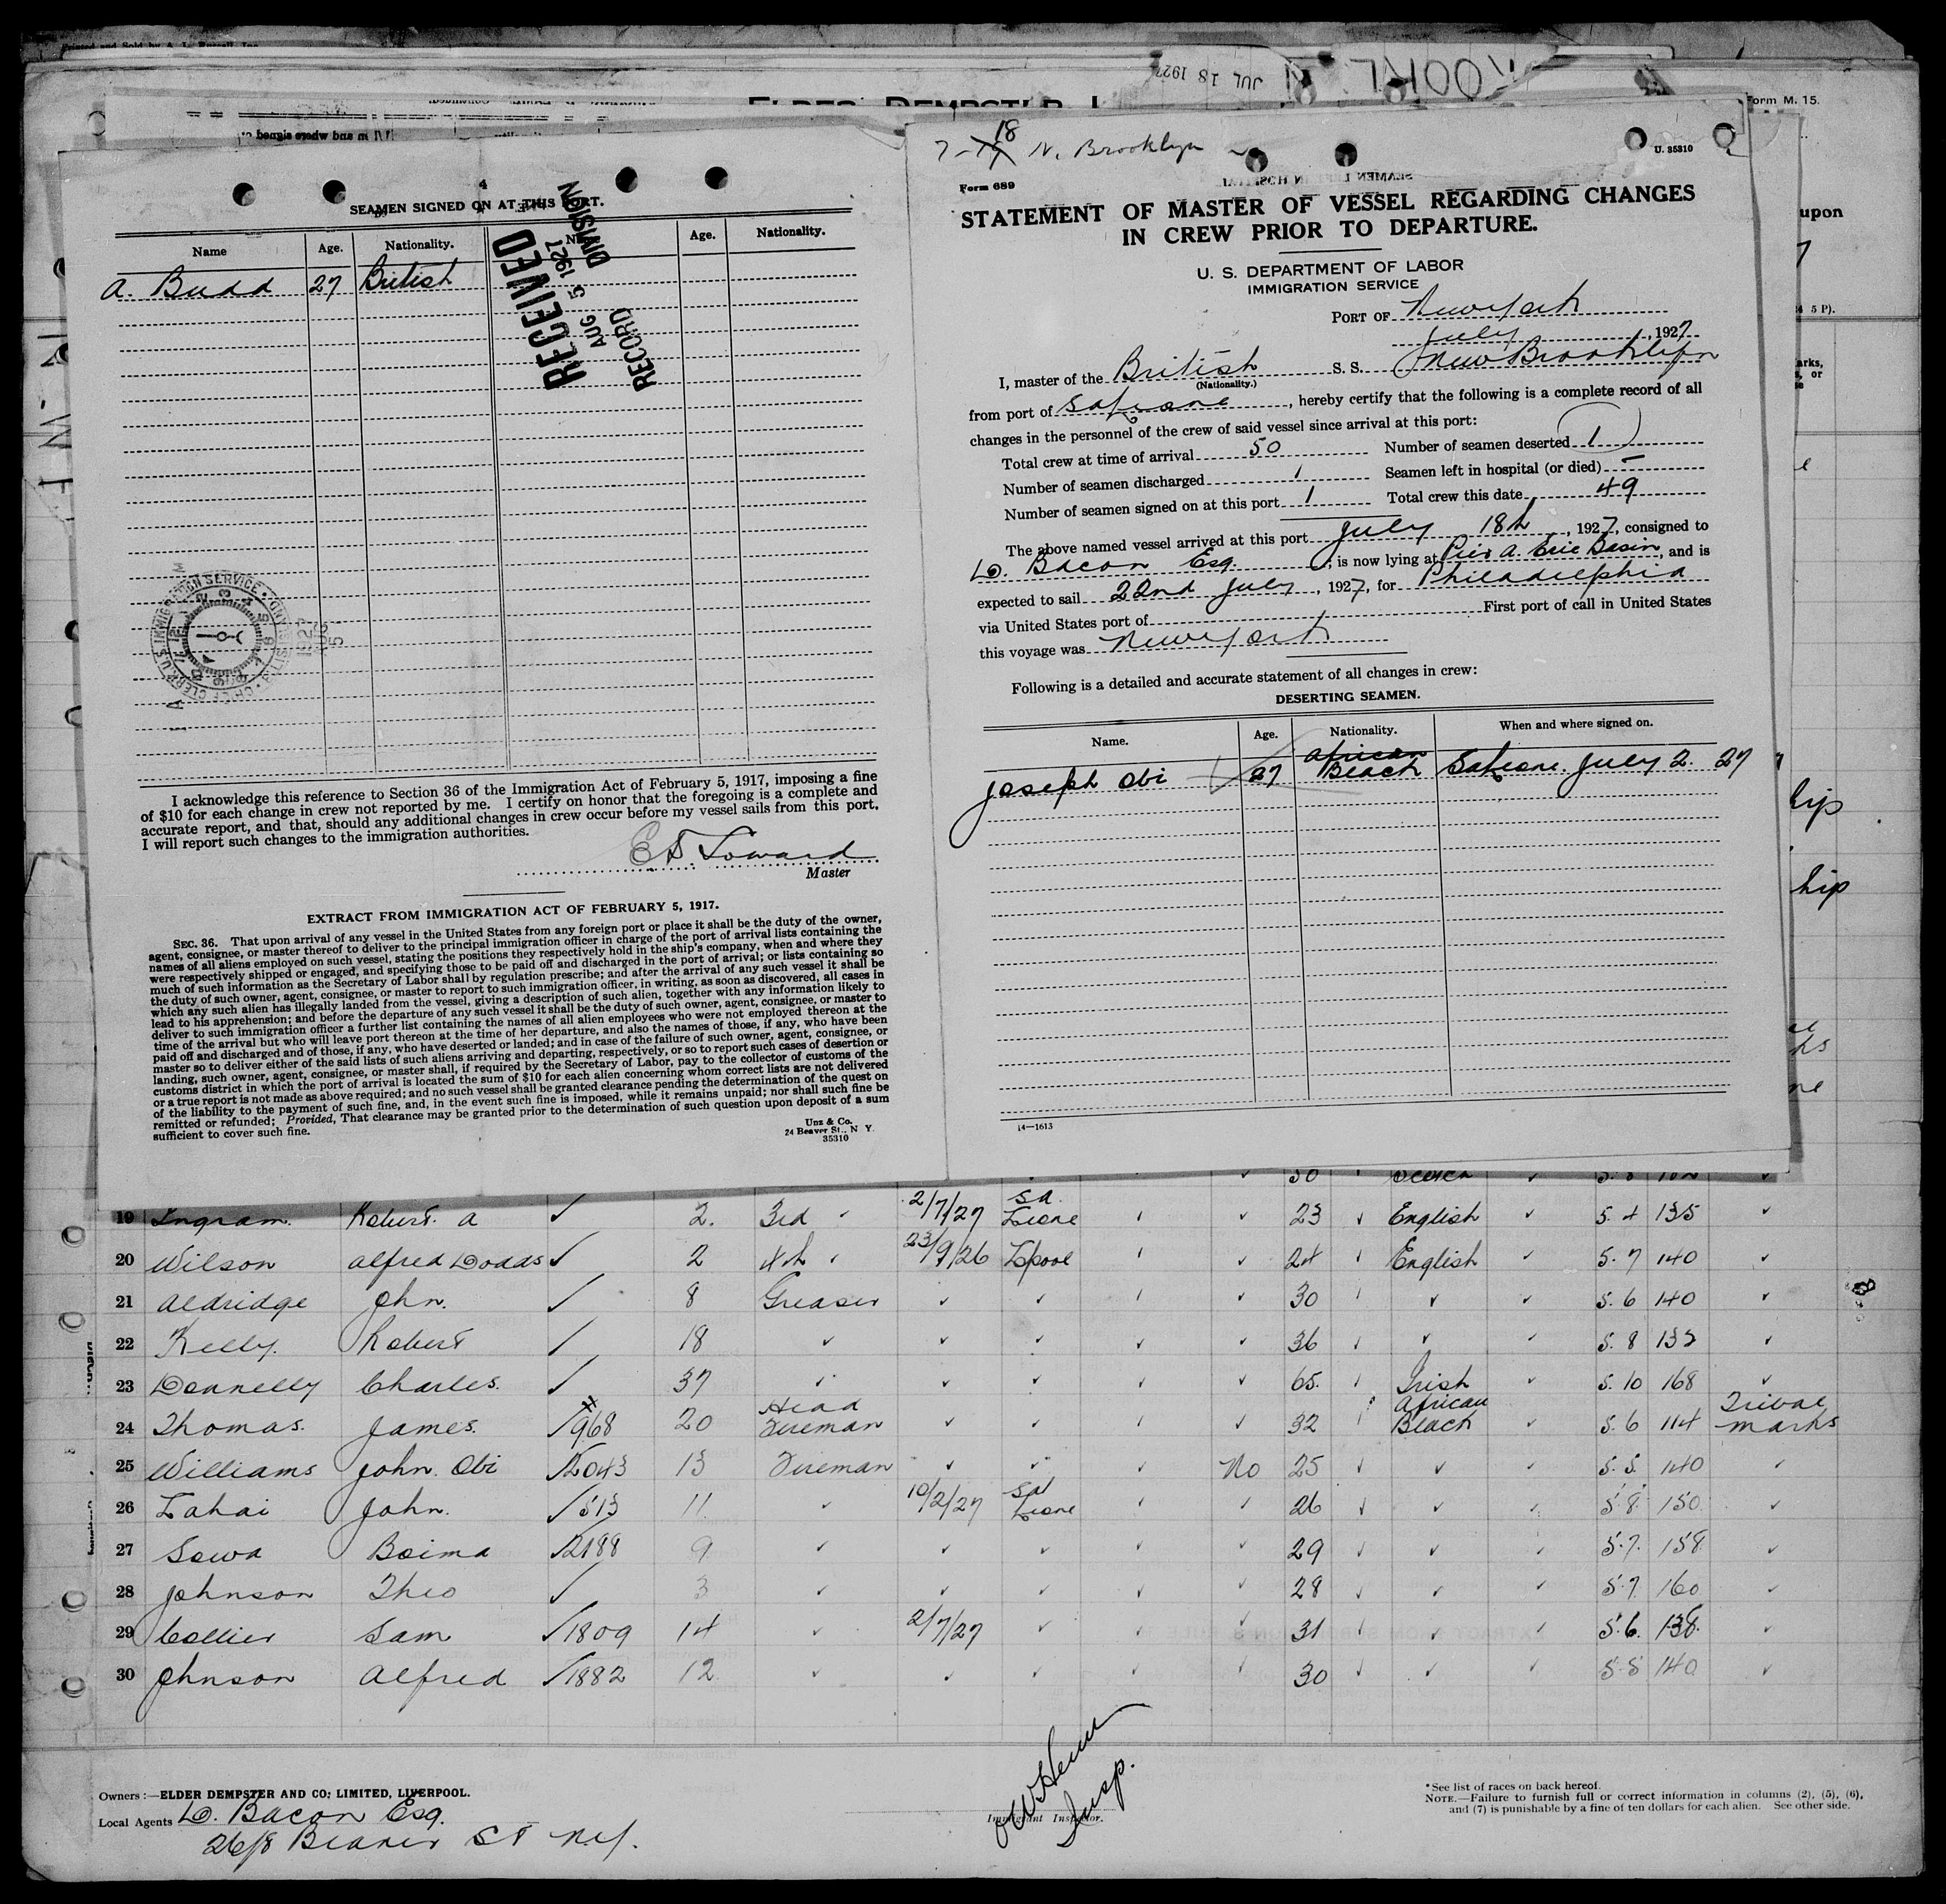 JUL 18 1927
Form M. 15.
SEAMEN SIGNED ON AT THIS PORT.
Name Age. Nationality. Age. Nationality.
A. Budd 27 British
RECEIVED
AUG 5 1927
RECORD DIVISION
I acknowledge this reference to Section 36 of the Immigration Act of February 5, 1917, imposing a fine
of $10 for each change in crew not reported by me. I certify on honor that the foregoing is a complete and
accurate report, and that, should any additional changes in crew occur before my vessel sails from this port,
I will report such changes to the immigration authorities.
Master
EXTRACT FROM IMMIGRATION ACT OF FEBRUARY 5, 1917.
SEC. 36. That upon arrival of any vessel in the United States from any foreign port or place it shall be the duty of the owner,
agent, consignee, or master thereof to deliver to the principal immigration officer in charge of the port of arrival lists containing the
names of all aliens employed on such vessel, stating the positions they respectively hold in the ship's company, when and where they
were respectively shipped or engaged, and specifying those to be paid off and discharged in the port of arrival; or lists containing so
much of such information as the Secretary of Labor shall by regulation prescribe; and after the arrival of any such vessel it shall be
the duty of such owner, agent, consignee, or master to report to such immigration officer, in writing, as soon as discovered, all cases in
which any such alien has illegally landed from the vessel, giving a description of such alien, together with any information likely to
lead to his apprehension; and before the departure of any such vessel it shall be the duty of such owner, agent, consignee, or master to
deliver to such immigration officer a further list containing the names of all alien employees who were not employed thereon at the
time of the arrival but who will leave port thereon at the time of her departure, and also the names of those, if any, who have been
paid off and discharged and of those, if any, who have deserted or landed; and in case of the failure of such owner, agent, consignee, or
master so to deliver either of the said lists of such aliens arriving and departing, respectively, or so to report such cases of desertion or
landing, such owner, agent, consignee, or master shall, if required by the Secretary of Labor, pay to the collector of customs of the
customs district in which the port of arrival is located the sum of $10 for each alien concerning whom correct lists are not delivered
or a true report is not made as above required; and no such vessel shall be granted clearance pending the determination of the quest on
of the liability to the payment of such fine, and, in the event such fine is imposed, while it remains unpaid; nor shall such fine be
remitted or refunded; Provided, That clearance may be granted prior to the determination of such question upon deposit of a sum
sufficient to cover such fine.
Unz & Co.
24 Beaver St., N Y.
35310
18
N. Brooklyn
U. 35310
Form 689
STATEMENT OF MASTER OF VESSEL REGARDING CHANGES
IN CREW PRIOR TO DEPARTURE.
U. S. DEPARTMENT OF LABOR
IMMIGRATION SERVICE
PORT OF New York
July, 1927
I, master of the British S. S. New Brooklyn
(Nationality.)
from port of Sa Leone, hereby certify that the following is a complete record of all
changes in the personnel of the crew of said vessel since arrival at this port:
Total crew at time of arrival 50 Number of seamen deserted 1
Number of seamen discharged 1 Seamen left in hospital (or died) –
Number of seamen signed on at this port 1 Total crew this date 49
The above named vessel arrived at this port July 18th, 1927, consigned to
D. Bacon Esq., is now lying at Pier A. Erie Basin, and is
expected to sail 22nd July, 1927, for Philadelphia
via United States port of First port of call in United States
this voyage was New York
Following is a detailed and accurate statement of all changes in crew:
DESERTING SEAMEN.
Name. Age. Nationality. When and where signed on.
Joseph Obi 27 African Black Sa Leone. July 2. 27
14—1613
19 Ingram. Robert. A ✓ 2. 3rd 2/7/27 Sa. Leone 23 English 5. 4 135
20 Wilson Alfred Dodds ✓ 2 4th 23/9/26 Lpool 24 English 5. 7 140
21 Aldridge John. ✓ 8 Greaser 30 5. 6 140
22 Kelly. Robert ✓ 18 36 5. 8 135
23 Donnelly Charles. ✓ 37 65. Irish 5. 10 168
24 Thomas. James. ✓ 968 20 Head Fireman 32 African Black 5. 6 114 Tribal marks
25 Williams John. Obi ✓ 2043 13 Fireman No 25 5. 5. 140
26 Lahai John. ✓ 513 11 10/2/27 Sa Leone 26 5. 8. 150
27 Sowa Boima ✓ 2188 9 29 5. 7. 158
28 Johnson Theo ✓ 3 28 5. 7 160
29 Collier Sam ✓ 1809 14 2/7/27 31 5. 6. 138.
30 Johnson Alfred ✓ 1882 12 30 5. 5 140
Owners:—ELDER DEMPSTER AND CO; LIMITED, LIVERPOOL.
Local Agents D. Bacon Esq.
26/8 Beaver St N.Y.
Insp.
Immigrant Inspector.
*See list of races on back hereof.
NOTE.—Failure to furnish full or correct information in columns (2), (5), (6),
and (7) is punishable by a fine of ten dollars for each alien. See other side.